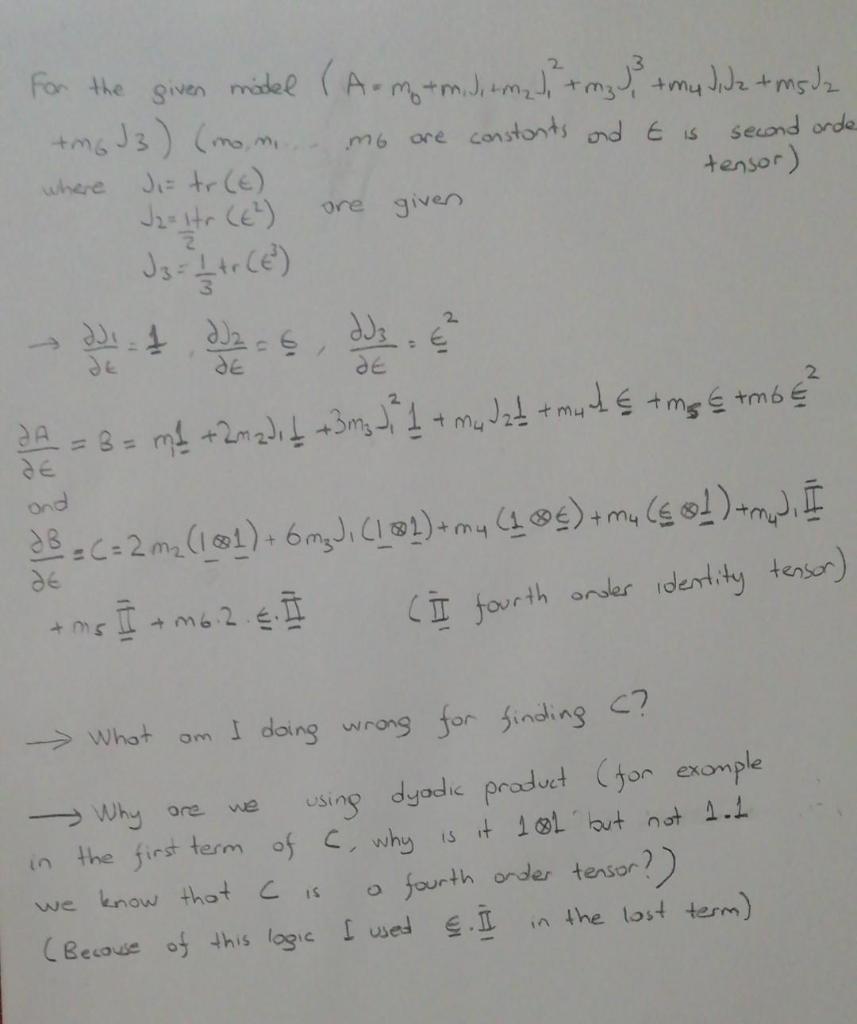 For the given model ( A = m₀ + m₁J₁ + m₂J₁² + m₃J₁³ + m₄J₁J₂ + m₅J₂
+ m₆J₃ ) (m₀, m₁ ... m₆ are constants and ϵ is second orde
tensor)
where J₁ = tr(ϵ)
J₂ = 1/2 tr(ϵ²) are given
J₃ = 1/3 tr(ϵ³)
→ ∂J₁/∂ϵ = 1, ∂J₂/∂ϵ = ϵ, ∂J₃/∂ϵ = ϵ²
∂A/∂ϵ = B = m₁1 + 2m₂J₁1 + 3m₃J₁²1 + m₄J₂1 + m₄Jϵ + m₅ϵ + m₆ϵ²
and
∂B/∂ϵ = C = 2m₂(1⊗1) + 6m₃J₁(1⊗1) + m₄(1⊗ϵ) + m₄(ϵ⊗1) + m₄J₁Ī̄
+ m₅ Ī̄ + m₆.2.ϵ.Ī̄ (Ī̄ fourth order identity tensor)
→ What am I doing wrong for finding C?
→ Why are we using dyadic product (for example
in the first term of C, why is it 1⊗1 but not 1.1
we know that C is a fourth order tensor?)
(Because of this logic I used ϵ.Ī̄ in the last term)